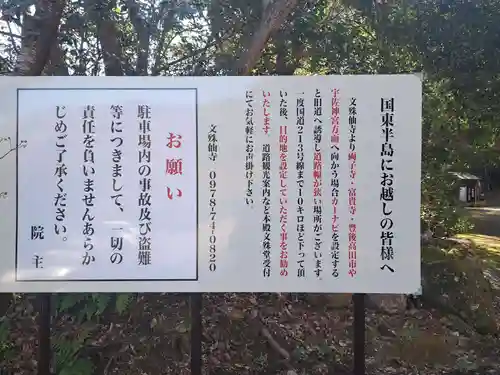 国東半島にお越しの皆様へ
文殊仙寺より両子寺・富貴寺・豊後高田市や
宇佐神宮方面へ向かう場合カーナビを設定する
と旧道へ誘導し道路幅が狭い場所がございます。
一度国道213号線まで10キロほど下って頂
いた後、目的地を設定していただく事をお勧め
いたします。道路観光案内など本殿文殊堂受付
にてお気軽にお声掛け下さい。
文殊仙寺 0978-74-0820
お願い
駐車場内の事故及び盗難
等につきまして、一切の
責任を負いませんあらか
じめご了承ください。
院主